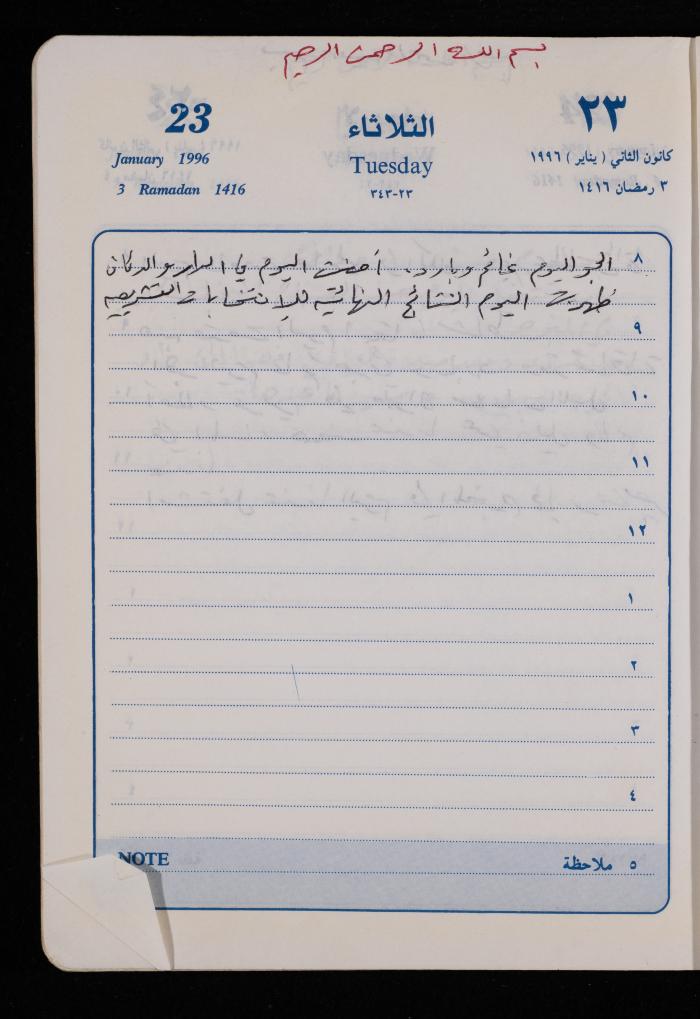 بسم الله الرحمن الرحيم
23 الثلاثاء ٢٣
January 1996 Tuesday كانون الثاني ( يناير ) ١٩٩٦
3 Ramadan 1416 ٢٣-٣٤٣ ٣ رمضان ١٤١٦
٨ الجو اليوم غائم وبارد. أمضيت اليوم في الدار والدكان
ظهرت اليوم النتائج النهائية للانتخابات التشريعيه
٩
١٠
١١
١٢
١
٢
٣
٤
NOTE ٥ ملاحظة